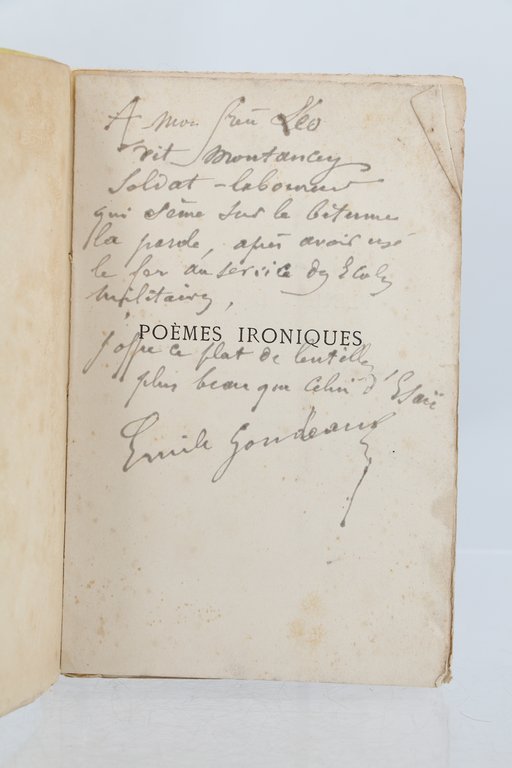 A mon frère Léo
Trit Montancey
Soldat-laboureur
qui sème sur le bitume
la parole, après avoir usé
le fer au service des Ecoles
militaires,
POÈMES IRONIQUES
J'offre ce plat de lentilles
plus beau que celui d'Esaü
Emile Goudeau